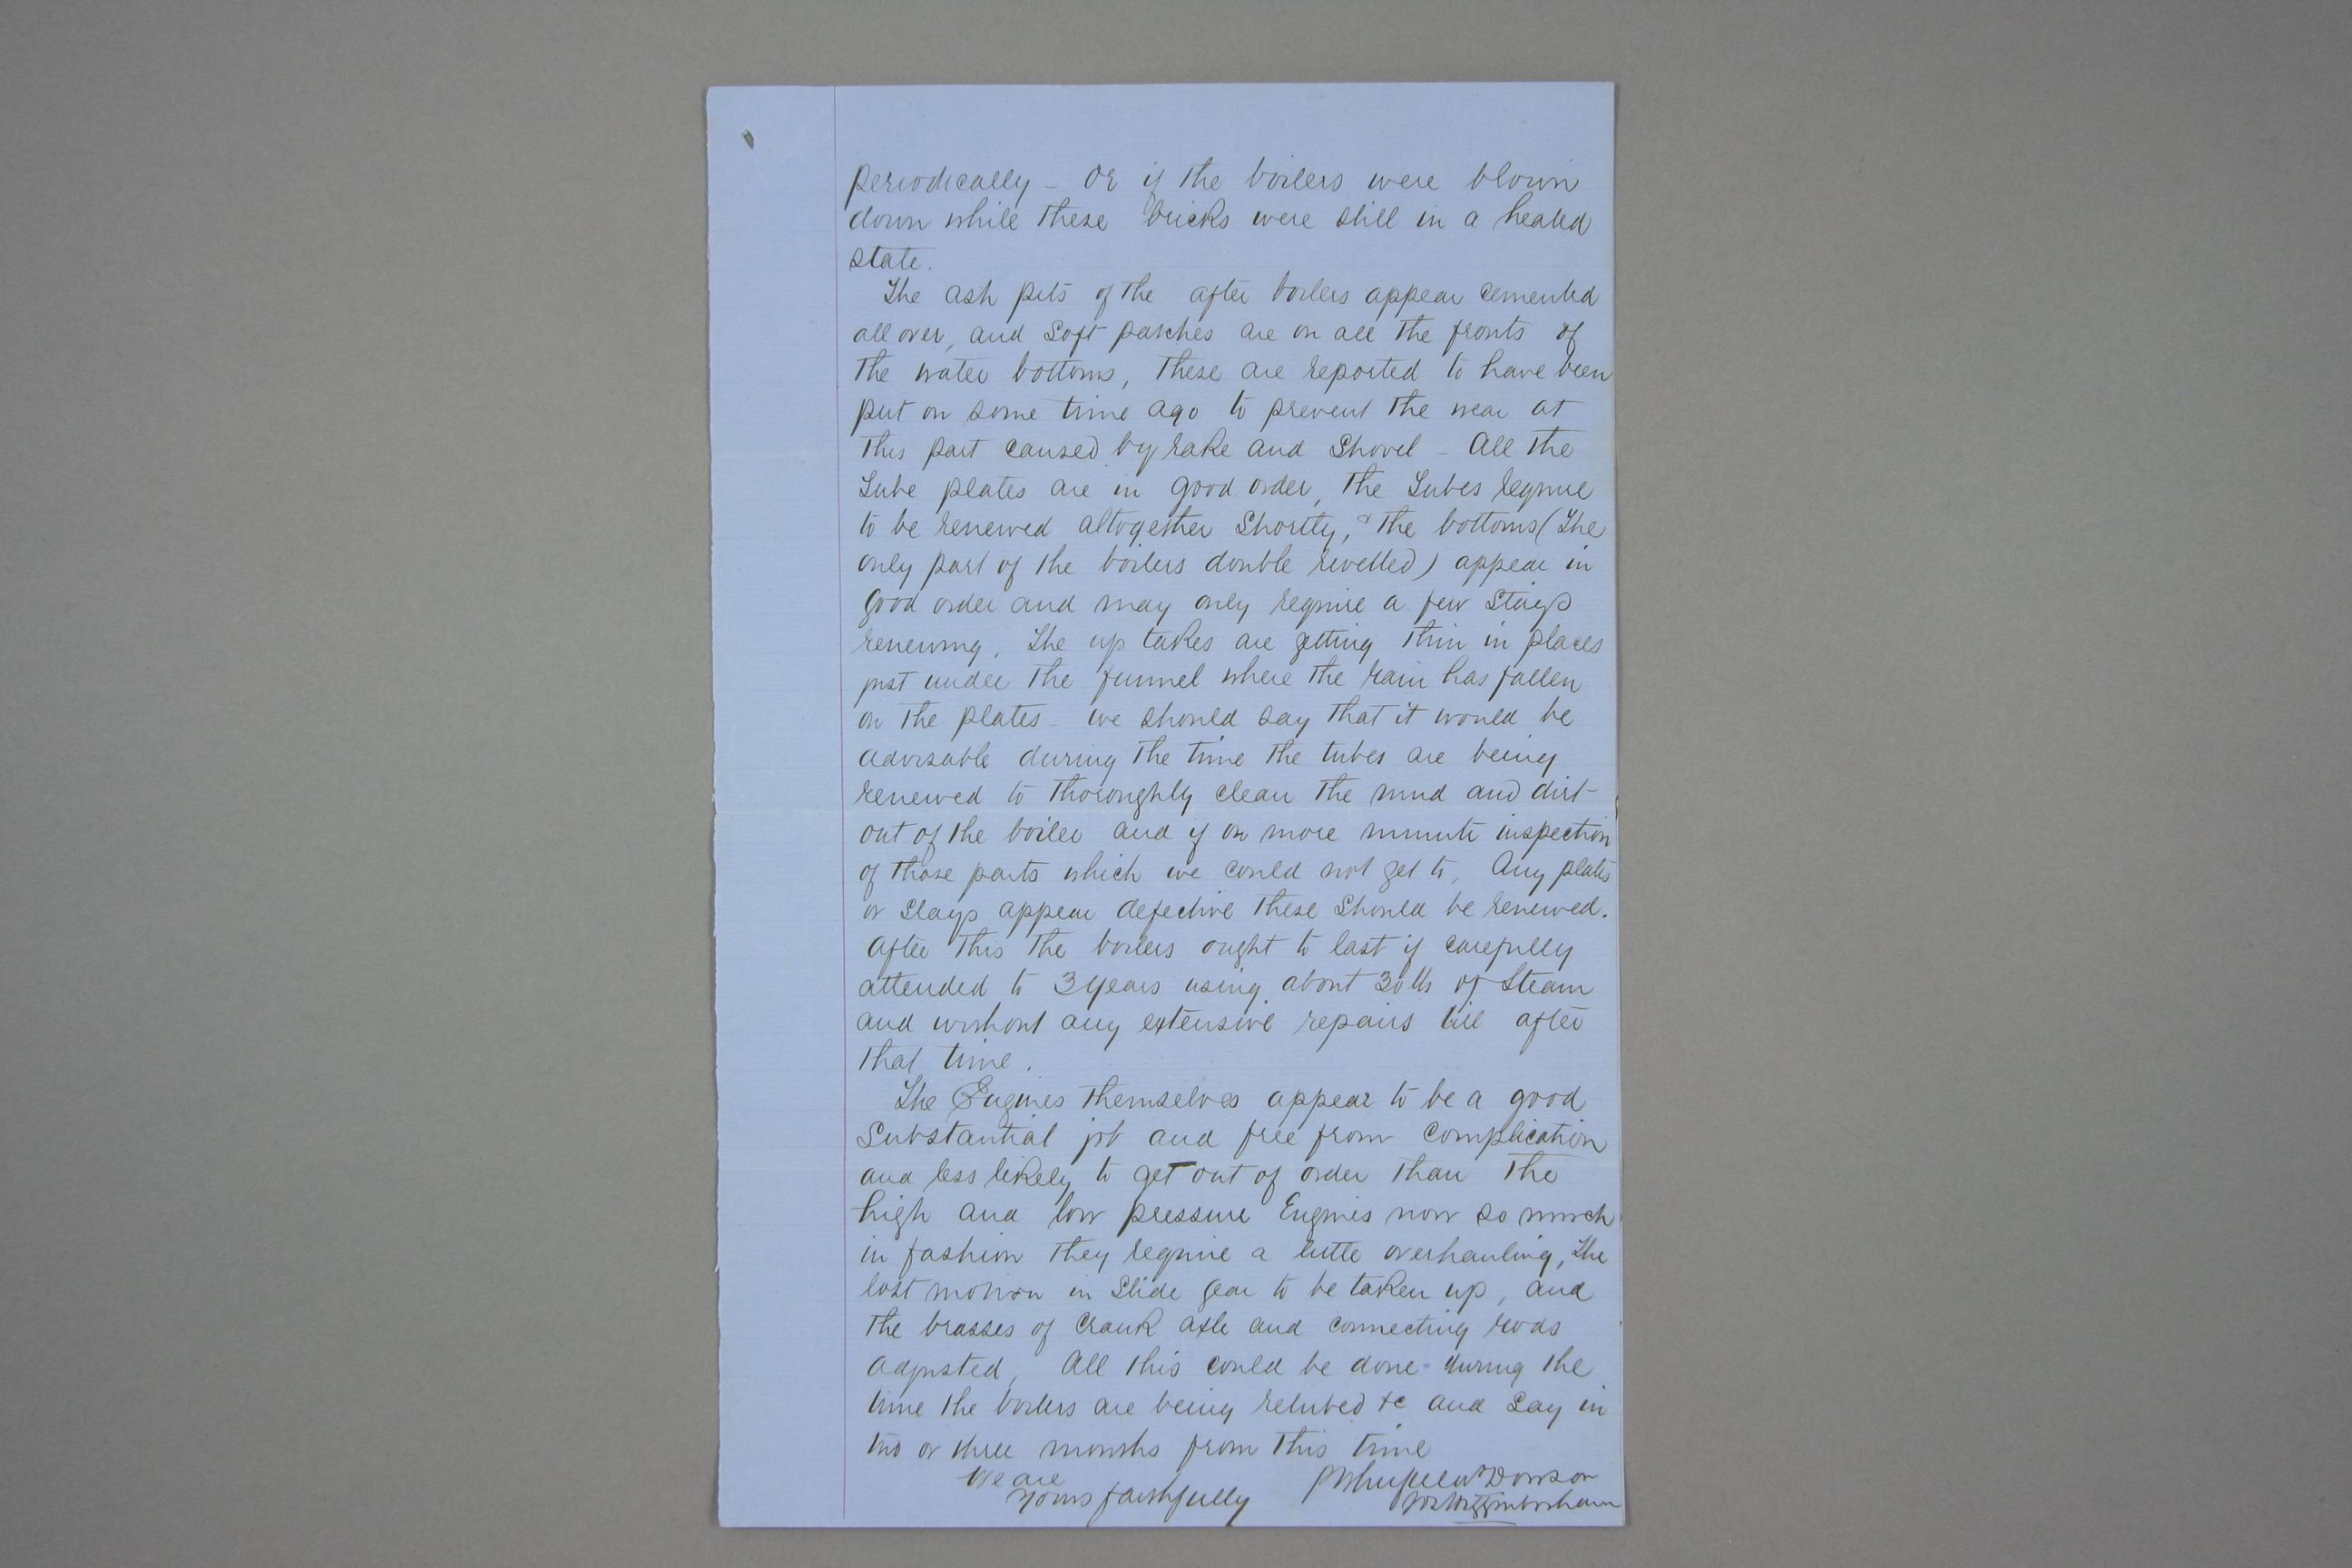 periodically – Or if the boilers were blown
down while these bricks were still in a heated
state.
The ash pits of the after boilers appear cemented
all over, and Soft patches are on all the fronts of
the water bottoms, these are reported to have been
put on some time ago to prevent the wear at
this part caused by rake and Shovel – All the
Tube plates are in good order, the Tubes require
to be renewed altogether Shortly, & the bottoms (The
only part of the boilers double rivetted) appear in
good order and may only require a few Stays
renewing. The up takes are getting thin in places
just under the funnel where the rain has fallen
on the plates – we should say that it would be
advisable during the time the tubes are being
renewed to thoroughly clean the mud and dirt
out of the boiler and if on more minute inspection
of those parts which we could not get to, Any plates
or Stays appear defective these Should be renewed.
After this the boilers ought to last if carefully
attended to 3 years using about 30 lbs of Steam
and without any extensive repairs till after
that time.
The Engines themselves appear to be a good
Substantial job and free from Complication
and less likely to get out of order than the
high and low pressure Engines now so much
in fashion they require a little overhauling, the
lost motion in Slide gear to be taken up, and
the brasses of Crank axle and connecting rods
adjusted, All this could be done during the
time the boilers are being retubed &c and Say in
two or three months from this time
We are
Yours faithfully
Dowson